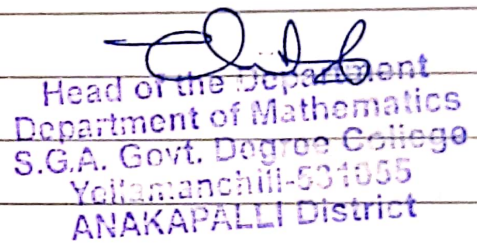 Head of the Department
Department of Mathematics
S.G.A. Govt. Degree College
Yellamanchili-531055
ANAKAPALLI District